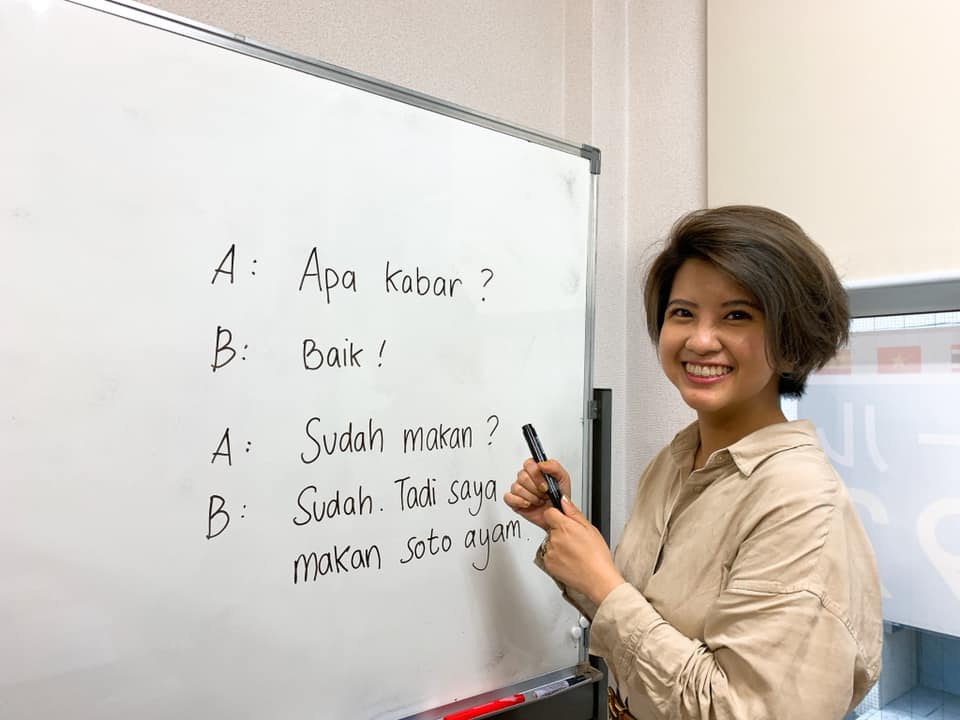 A : Apa kabar ?
B : Baik !
A : Sudah makan ?
B : Sudah. Tadi saya
makan soto ayam.